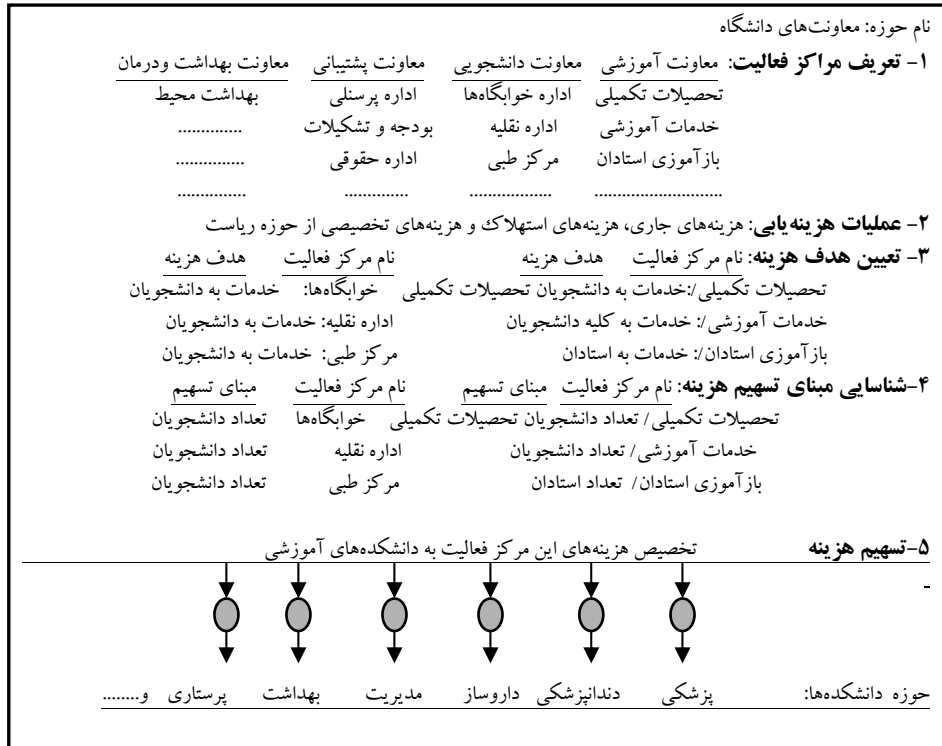 نام حوزه: معاونت‌های دانشگاه
۱- تعریف مراکز فعالیت: معاونت آموزشی معاونت دانشجویی معاونت پشتیبانی معاونت بهداشت ودرمان
تحصیلات تکمیلی اداره خوابگاه‌ها اداره پرسنلی بهداشت محیط
خدمات آموزشی اداره نقلیه بودجه و تشکیلات ..............
بازآموزی استادان مرکز طبی اداره حقوقی ...............
............................ .................. .............. ...............
۲- عملیات هزینه‌یابی: هزینه‌های جاری، هزینه‌های استهلاک و هزینه‌های تخصیصی از حوزه ریاست
۳- تعیین هدف هزینه: نام مرکز فعالیت هدف هزینه نام مرکز فعالیت هدف هزینه
تحصیلات تکمیلی/:خدمات به دانشجویان تحصیلات تکمیلی خوابگاه‌ها: خدمات به دانشجویان
خدمات آموزشی/: خدمات به کلیه دانشجویان اداره نقلیه: خدمات به دانشجویان
بازآموزی استادان/: خدمات به استادان مرکز طبی: خدمات به دانشجویان
۴-شناسایی مبنای تسهیم هزینه: نام مرکز فعالیت مبنای تسهیم نام مرکز فعالیت مبنای تسهیم
تحصیلات تکمیلی/ تعداد دانشجویان تحصیلات تکمیلی خوابگاه‌ها تعداد دانشجویان
خدمات آموزشی/ تعداد دانشجویان اداره نقلیه تعداد دانشجویان
بازآموزی استادان/ تعداد استادان مرکز طبی تعداد دانشجویان
۵-تسهیم هزینه تخصیص هزینه‌های این مرکز فعالیت به دانشکده‌های آموزشی
-
حوزه دانشکده‌ها: پزشکی دندانپزشکی داروساز مدیریت بهداشت پرستاری و........